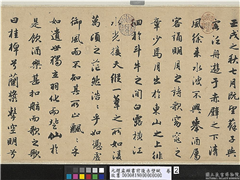 壬戌之秋七月既望蘇子與
客泛舟遊于赤壁之下清
風徐來水波不興舉酒屬
客誦明月之詩歌窈窕之
章少焉月出於東山之上徘
徊於斗牛之間白露橫江
水光接天縱一葦之所如凌
萬頃之茫然浩浩乎如馮虛
御風而不知其所止飄飄乎
如遺世獨立羽化而登仙於
是飲酒樂甚扣舷而歌之歌
曰桂棹兮蘭槳擊空明
元趙孟頫書前後赤壁賦